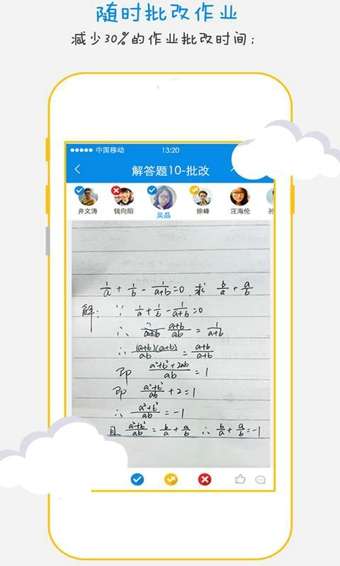 随时批改作业
减少30%的作业批改时间；
中国移动 13:20
解答题10-批改
井文涛 钱向阳 吴晶 徐峰 汪海伦 孙
1/a + 1/b - 1/(a+b) = 0 求 b/a + a/b
解： ∵ 1/a + 1/b - 1/(a+b) = 0
∴ (a+b)/ab = 1/(a+b)
∴ (a+b)(a+b)/ab = (a+b)/(a+b)
即 (a²+b²+2ab)/ab = 1
即 (a²+b²)/ab + 2 = 1
∴ (a²+b²)/ab = -1
且 (a²+b²)/ab = b/a + a/b ∴ b/a + a/b = -1